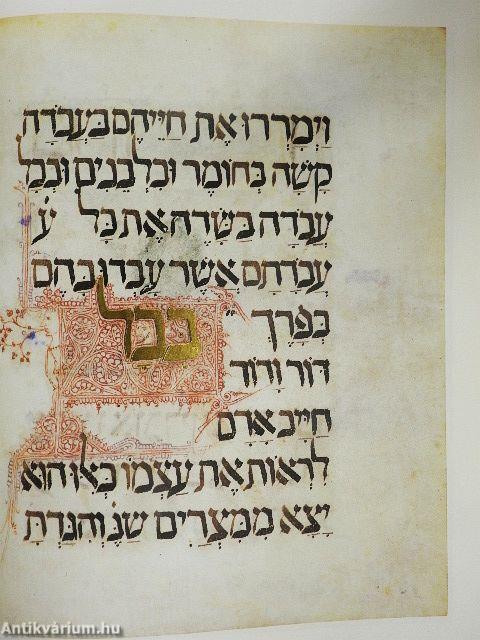 וַיְמָרֲרוּ אֶת חַיֵּיהֶם בַּעֲבֹדָה
קָשָׁה בְּחוֹמֶר וּבִלְבֵנִים וּבְכָל
עֲבֹדָה בַּשָּׂדֶה אֶת כָּל ע
עֲבֹדָתָם אֲשֶׁר עָבְדוּ בָהֶם
בְּפָרֶךְ
בְּכָל
דּוֹר וָדוֹר
חַיָּב אָדָם
לִרְאוֹת אֶת עַצְמוֹ כְּאִלּוּ הוּא
יָצָא מִמִּצְרַיִם שֶׁנֶּ׳ וְהִגַּדְתָּ
Antikvárium.hu